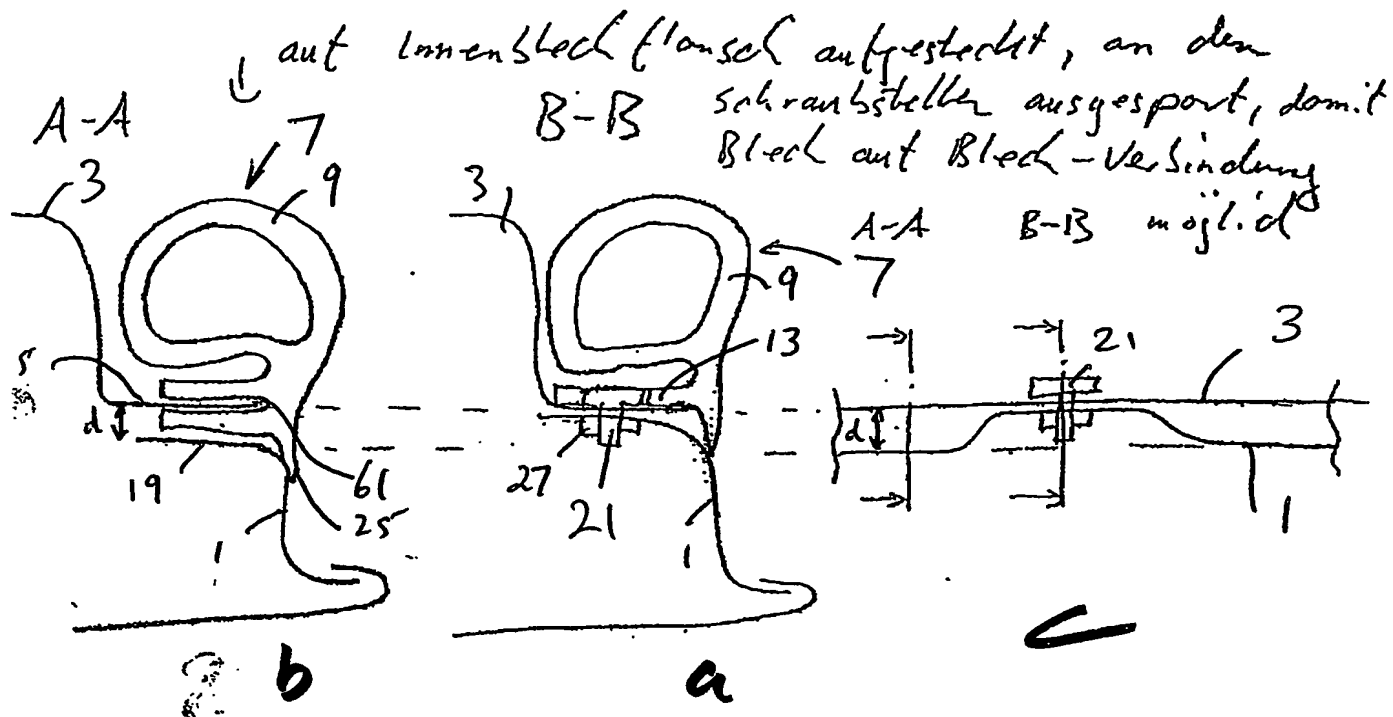 auf Innenblechflansch aufgesteckt, an den
Schraubstellen ausgespart, damit
Blech auf Blech-Verbindung
möglich
A-A
B-B
A-A
B-B
7
3
9
5
d
19
61
25
1
b
3
7
9
13
27
21
1
a
21
3
d
1
c